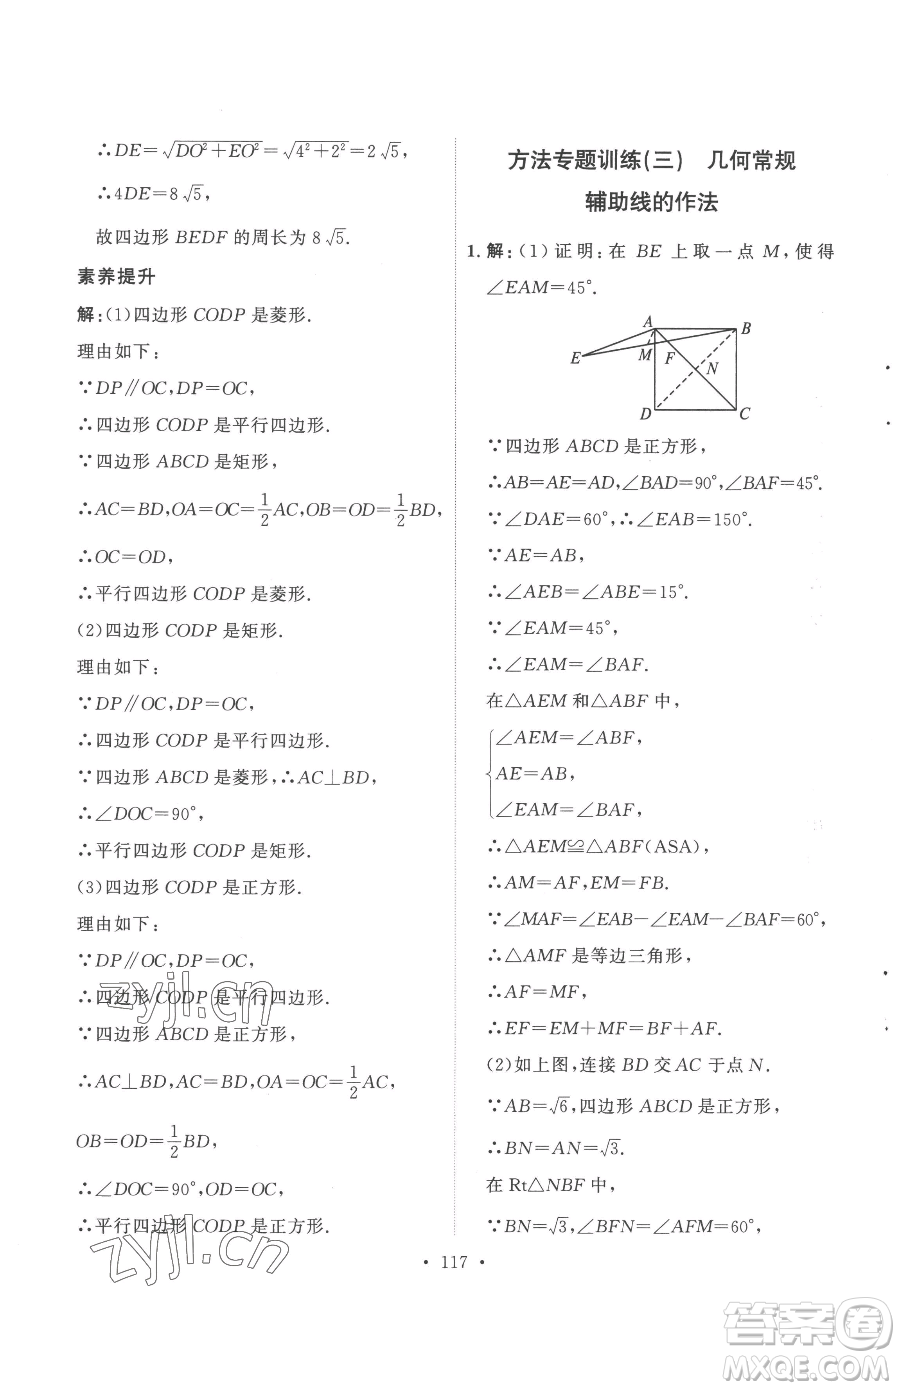 ∴DE=√(DO²+EO²)=√(4²+2²)=2√5,
∴4DE=8√5,
故四边形 BEDF 的周长为 8√5.
素养提升
解:(1)四边形 CODP 是菱形.
理由如下:
∵DP∥OC,DP=OC,
∴四边形 CODP 是平行四边形.
∵四边形 ABCD 是矩形,
∴AC=BD,OA=OC=1/2AC,OB=OD=1/2BD,
∴OC=OD,
∴平行四边形 CODP 是菱形.
(2)四边形 CODP 是矩形.
理由如下:
∵DP∥OC,DP=OC,
∴四边形 CODP 是平行四边形.
∵四边形 ABCD 是菱形,∴AC⊥BD,
∴∠DOC=90°,
∴平行四边形 CODP 是矩形.
(3)四边形 CODP 是正方形.
理由如下:
∵DP∥OC,DP=OC,
∴四边形 CODP 是平行四边形.
∵四边形 ABCD 是正方形,
∴AC⊥BD,AC=BD,OA=OC=1/2AC,
OB=OD=1/2BD,
∴∠DOC=90°,OD=OC,
∴平行四边形 CODP 是正方形.
方法专题训练(三) 几何常规
辅助线的作法
1. 解:(1)证明:在 BE 上取一点 M,使得
∠EAM=45°.
A B
E M F N
D C
∵四边形 ABCD 是正方形,
∴AB=AE=AD,∠BAD=90°,∠BAF=45°.
∵∠DAE=60°,∴∠EAB=150°.
∵AE=AB,
∴∠AEB=∠ABE=15°.
∵∠EAM=45°,
∴∠EAM=∠BAF.
在△AEM 和△ABF 中,
∠AEM=∠ABF,
AE=AB,
∠EAM=∠BAF,
∴△AEM≌△ABF(ASA),
∴AM=AF,EM=FB.
∵∠MAF=∠EAB-∠EAM-∠BAF=60°,
∴△AMF 是等边三角形,
∴AF=MF,
∴EF=EM+MF=BF+AF.
(2)如上图,连接 BD 交 AC 于点 N.
∵AB=√6,四边形 ABCD 是正方形,
∴BN=AN=√3.
在 Rt△NBF 中,
∵BN=√3,∠BFN=∠AFM=60°,
• 117 •
zyjl.cn
zyjl.cn
答案圈
MXQE.COM